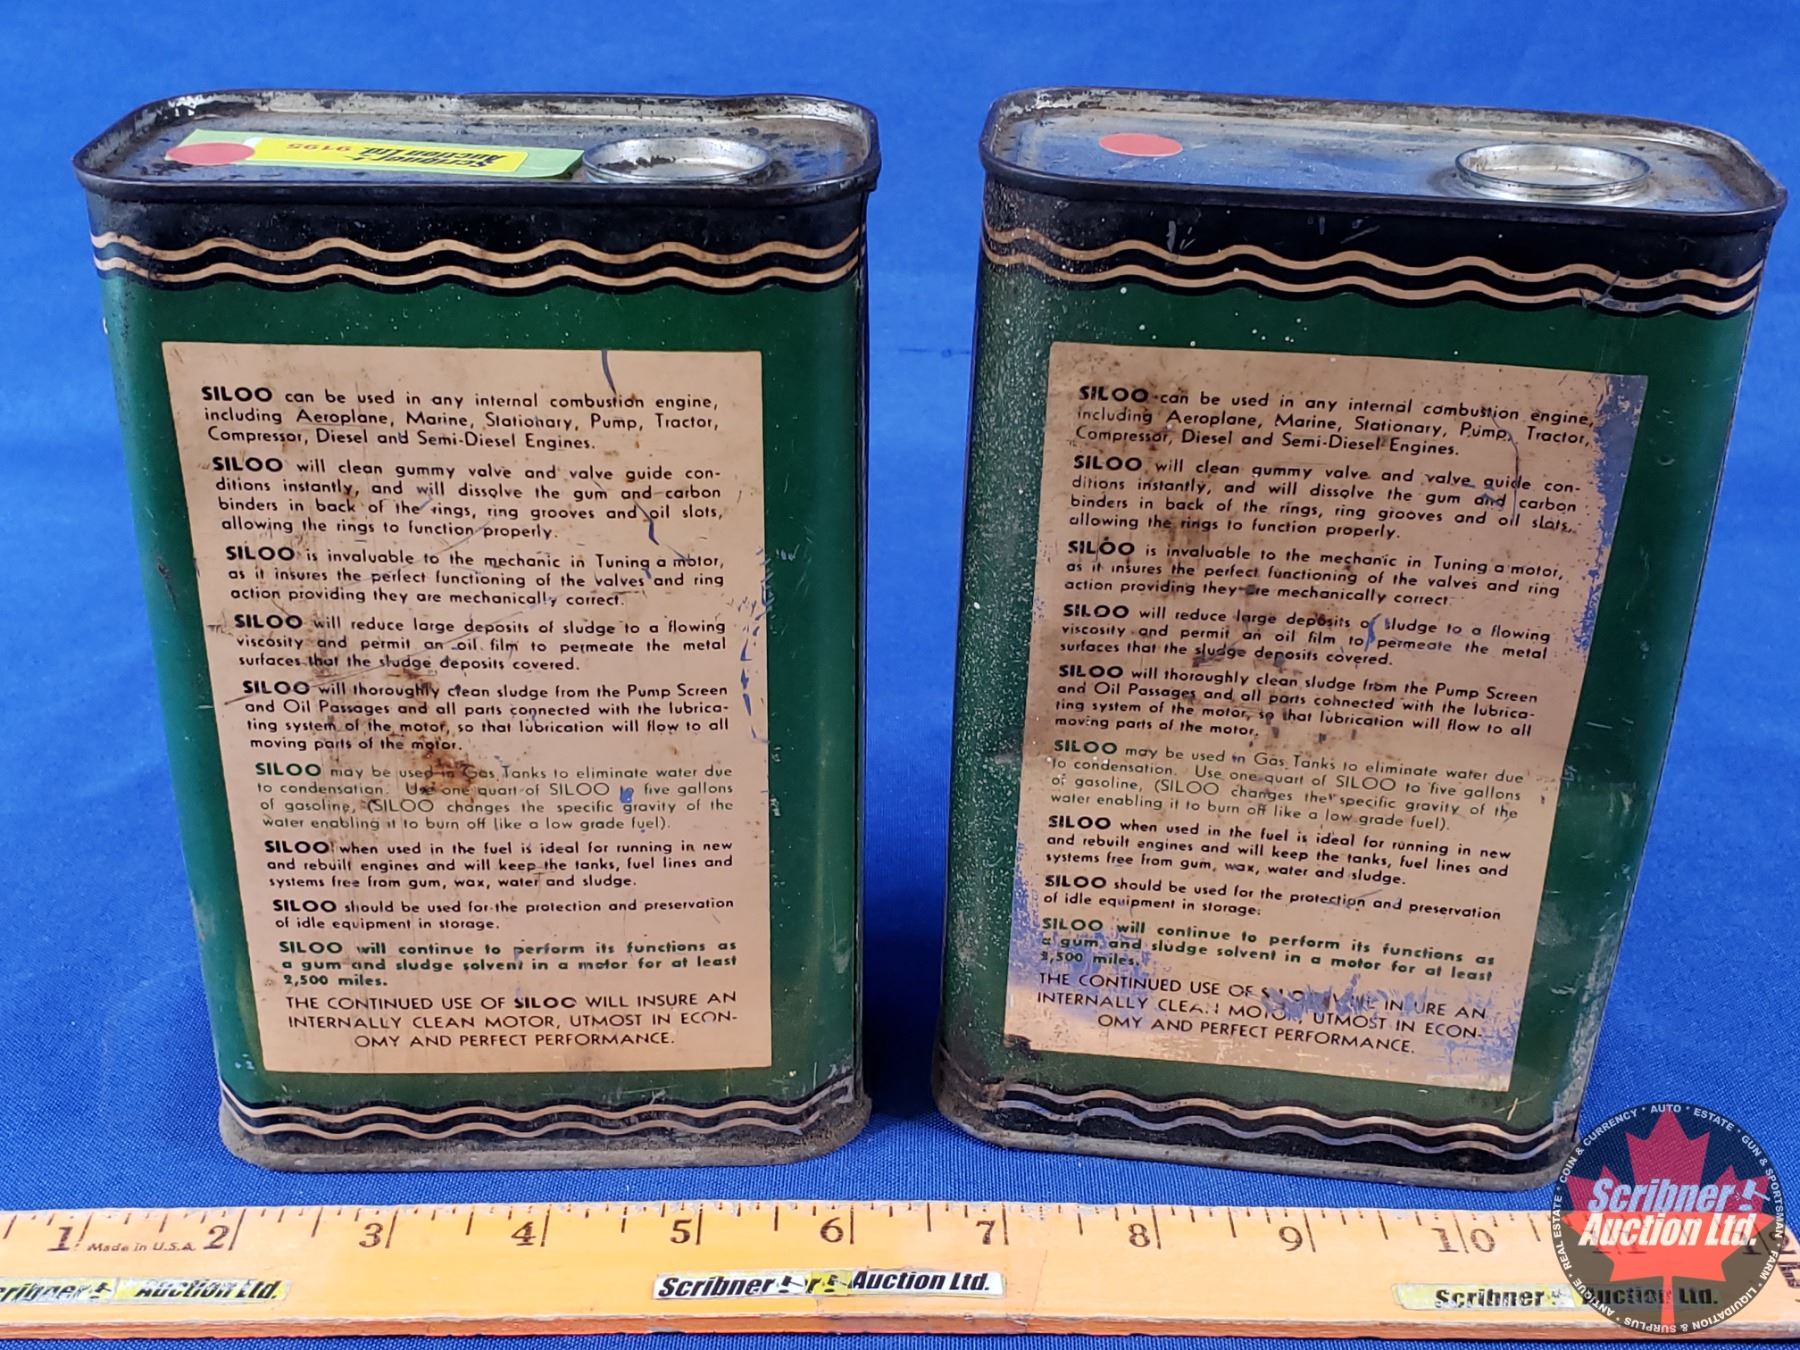 Scribner
Auction Ltd.
9195
SILOO can be used in any internal combustion engine,
including Aeroplane, Marine, Stationary, Pump, Tractor,
Compressor, Diesel and Semi-Diesel Engines.
SILOO will clean gummy valve and valve guide con-
ditions instantly, and will dissolve the gum and carbon
binders in back of the rings, ring grooves and oil slots,
allowing the rings to function properly.
SILOO is invaluable to the mechanic in Tuning a motor,
as it insures the perfect functioning of the valves and ring
action providing they are mechanically correct.
SILOO will reduce large deposits of sludge to a flowing
viscosity and permit an oil film to permeate the metal
surfaces that the sludge deposits covered.
SILOO will thoroughly clean sludge from the Pump Screen
and Oil Passages and all parts connected with the lubrica-
ting system of the motor, so that lubrication will flow to all
moving parts of the motor.
SILOO may be used in Gas Tanks to eliminate water due
to condensation. Use one quart of SILOO to five gallons
of gasoline, (SILOO changes the specific gravity of the
water enabling it to burn off like a low grade fuel).
SILOO when used in the fuel is ideal for running in new
and rebuilt engines and will keep the tanks, fuel lines and
systems free from gum, wax, water and sludge.
SILOO should be used for the protection and preservation
of idle equipment in storage.
SILOO will continue to perform its functions as
a gum and sludge solvent in a motor for at least
2,500 miles.
THE CONTINUED USE OF SILOO WILL INSURE AN
INTERNALLY CLEAN MOTOR, UTMOST IN ECON-
OMY AND PERFECT PERFORMANCE.
SILOO can be used in any internal combustion engine,
including Aeroplane, Marine, Stationary, Pump, Tractor,
Compressor, Diesel and Semi-Diesel Engines.
SILOO will clean gummy valve and valve guide con-
ditions instantly, and will dissolve the gum and carbon
binders in back of the rings, ring grooves and oil slots,
allowing the rings to function properly.
SILOO is invaluable to the mechanic in Tuning a motor,
as it insures the perfect functioning of the valves and ring
action providing they are mechanically correct
SILOO will reduce large deposits of sludge to a flowing
viscosity and permit an oil film to permeate the metal
surfaces that the sludge deposits covered.
SILOO will thoroughly clean sludge from the Pump Screen
and Oil Passages and all parts connected with the lubrica-
ting system of the motor, so that lubrication will flow to all
moving parts of the motor.
SILOO may be used in Gas Tanks to eliminate water due
to condensation. Use one quart of SILOO to five gallons
of gasoline, (SILOO changes the specific gravity of the
water enabling it to burn off like a low grade fuel).
SILOO when used in the fuel is ideal for running in new
and rebuilt engines and will keep the tanks, fuel lines and
systems free from gum, wax, water and sludge.
SILOO should be used for the protection and preservation
of idle equipment in storage.
SILOO will continue to perform its functions as
a gum and sludge solvent in a motor for at least
2,500 miles.
THE CONTINUED USE OF SILOO WILL INSURE AN
INTERNALLY CLEAN MOTOR, UTMOST IN ECON-
OMY AND PERFECT PERFORMANCE.
1 2 3 4 5 6 7 8 9 10 11 12
Made in U.S.A.
Scribner Auction Ltd.
Scribner Auction Ltd.
Scribner Auction Ltd.
ANTIQUE · REAL ESTATE · COIN & CURRENCY · AUTO · ESTATE · GUN & SPORTSMAN · FARM · LIQUIDATION & SURPLUS
Scribner
Auction Ltd.